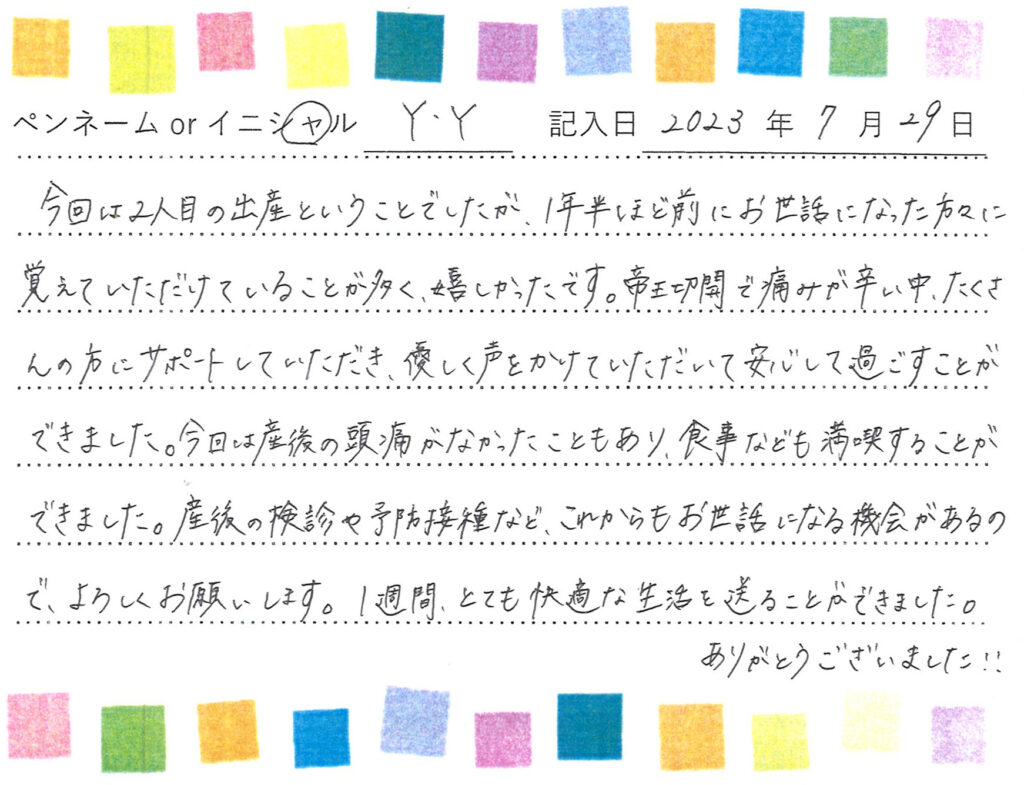 ペンネーム or イニシャル Y・Y 記入日 2023 年 7 月 29 日
今回は2人目の出産ということでしたが、1年半ほど前にお世話になった方々に
覚えていただけていることが多く、嬉しかったです。帝王切開で痛みが辛い中、たくさ
んの方にサポートしていただき、優しく声をかけていただいて安心して過ごすことが
できました。今回は産後の頭痛がなかったこともあり、食事なども満喫することが
できました。産後の検診や予防接種など、これからもお世話になる機会があるの
で、よろしくお願いします。1週間、とても快適な生活を送ることができました。
ありがとうございました!!